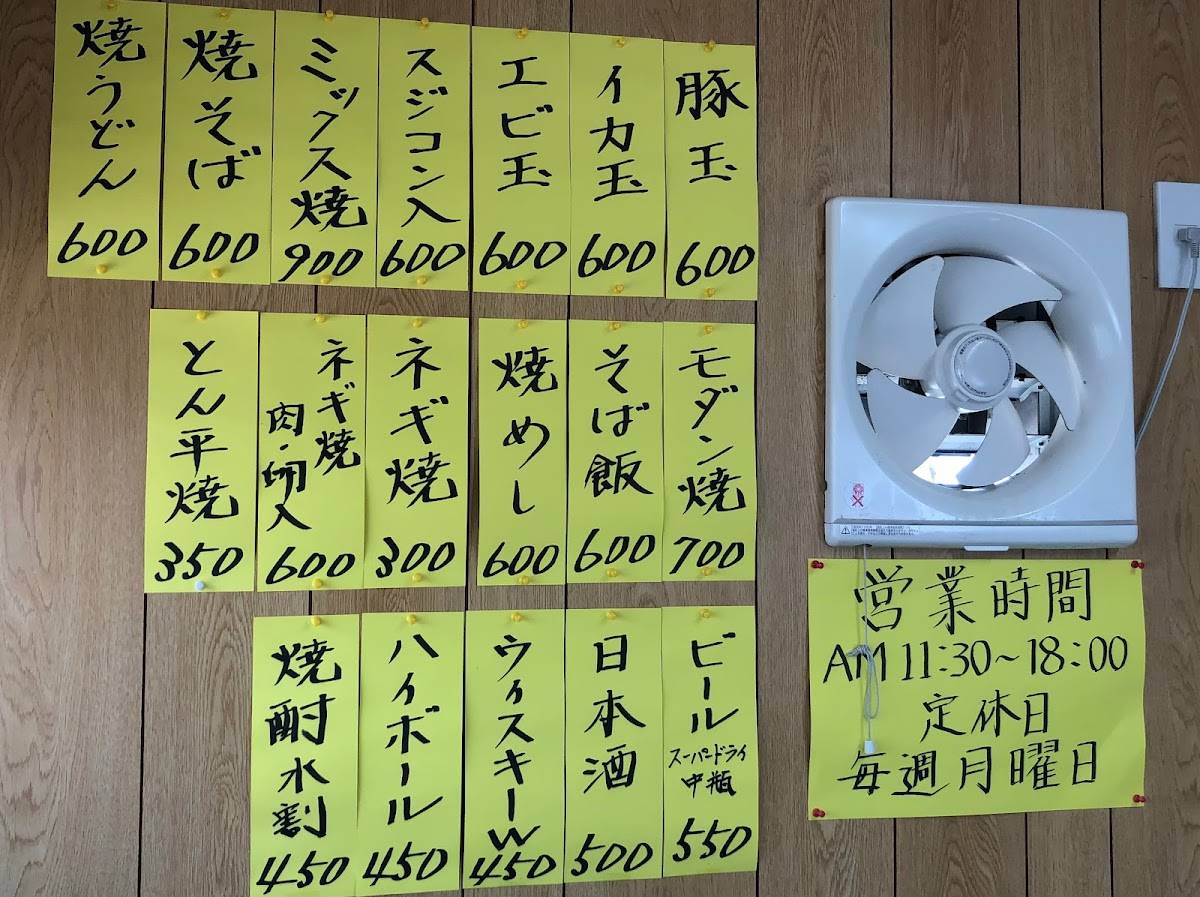 豚玉
600
イカ玉
600
エビ玉
600
スジコン入
600
ミックス焼
900
焼そば
600
焼うどん
600
モダン焼
700
そば飯
600
焼めし
600
ネギ焼
300
ネギ焼
肉・卵入
600
とん平焼
350
ビール
スーパードライ
中瓶
550
日本酒
500
ウィスキーW
450
ハイボール
450
焼酎水割
450
営業時間
AM11:30～18:00
定休日
毎週月曜日